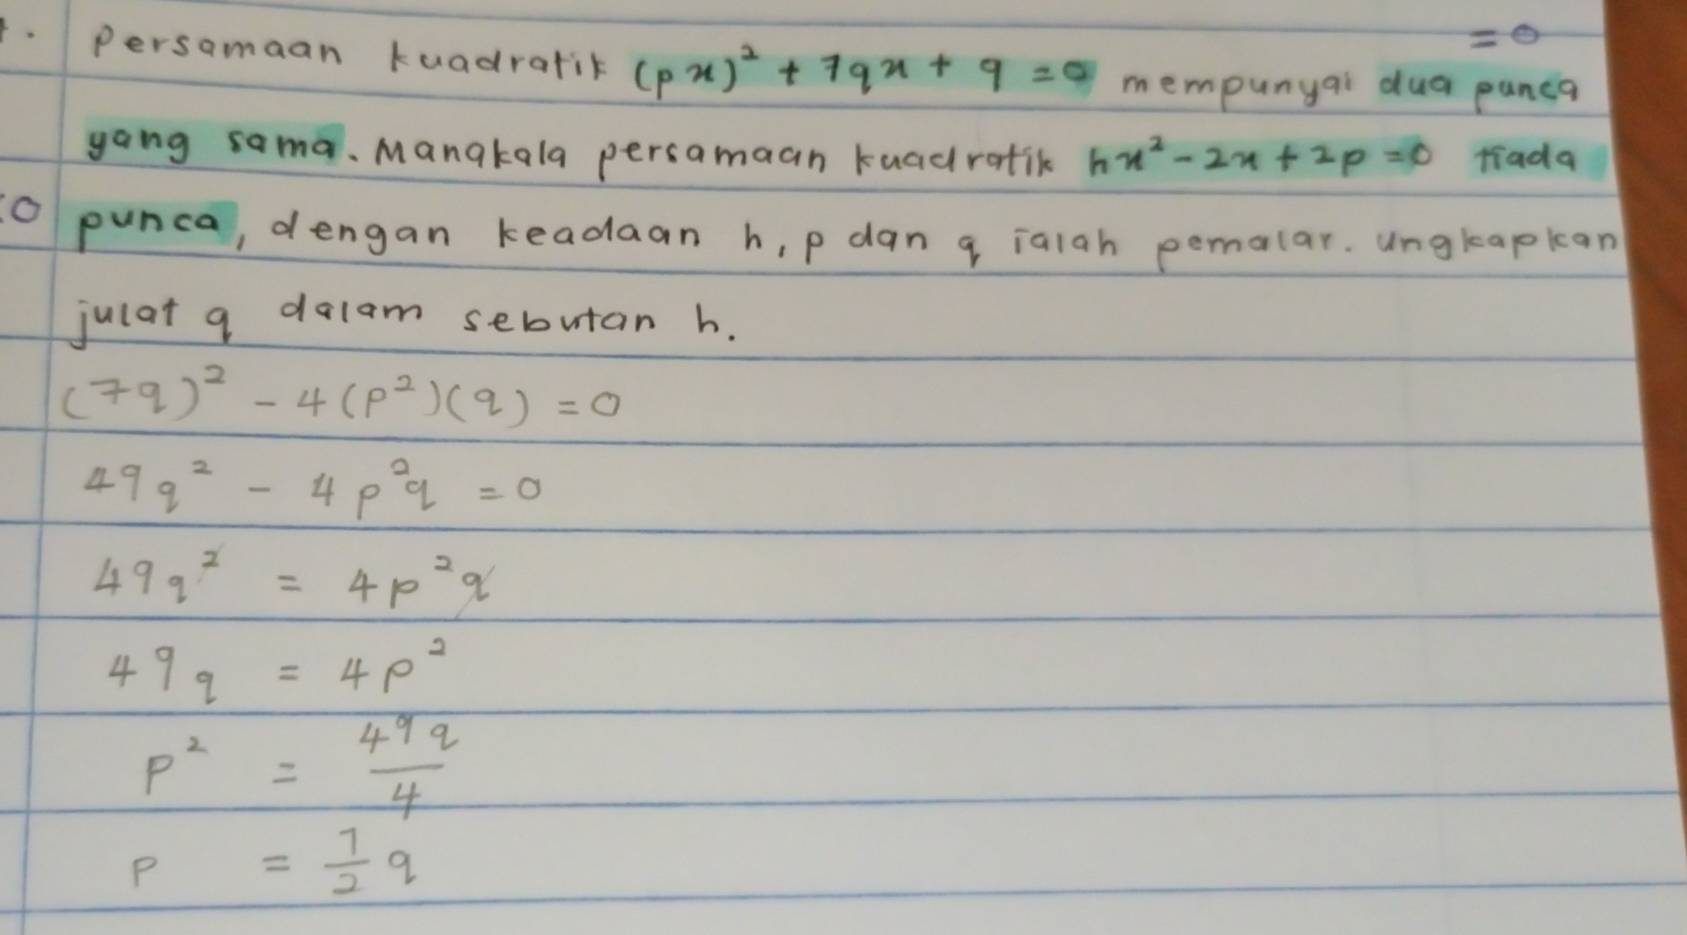 = 0
Persamaan kuadratik (px)² + 7qx + q = 0 mempunyai dua punca
yang sama. Manakala persamaan kuadratik hx² - 2x + 2p = 0 tiada
punca, dengan keadaan h, p dan q ialah pemalar. Ungkapkan
julat q dalam sebutan h.
(7q)² - 4(p²)(q) = 0
49q² - 4p²q = 0
49q² = 4p²q
49q = 4p²
p² = 49q/4
p = 7/2 q